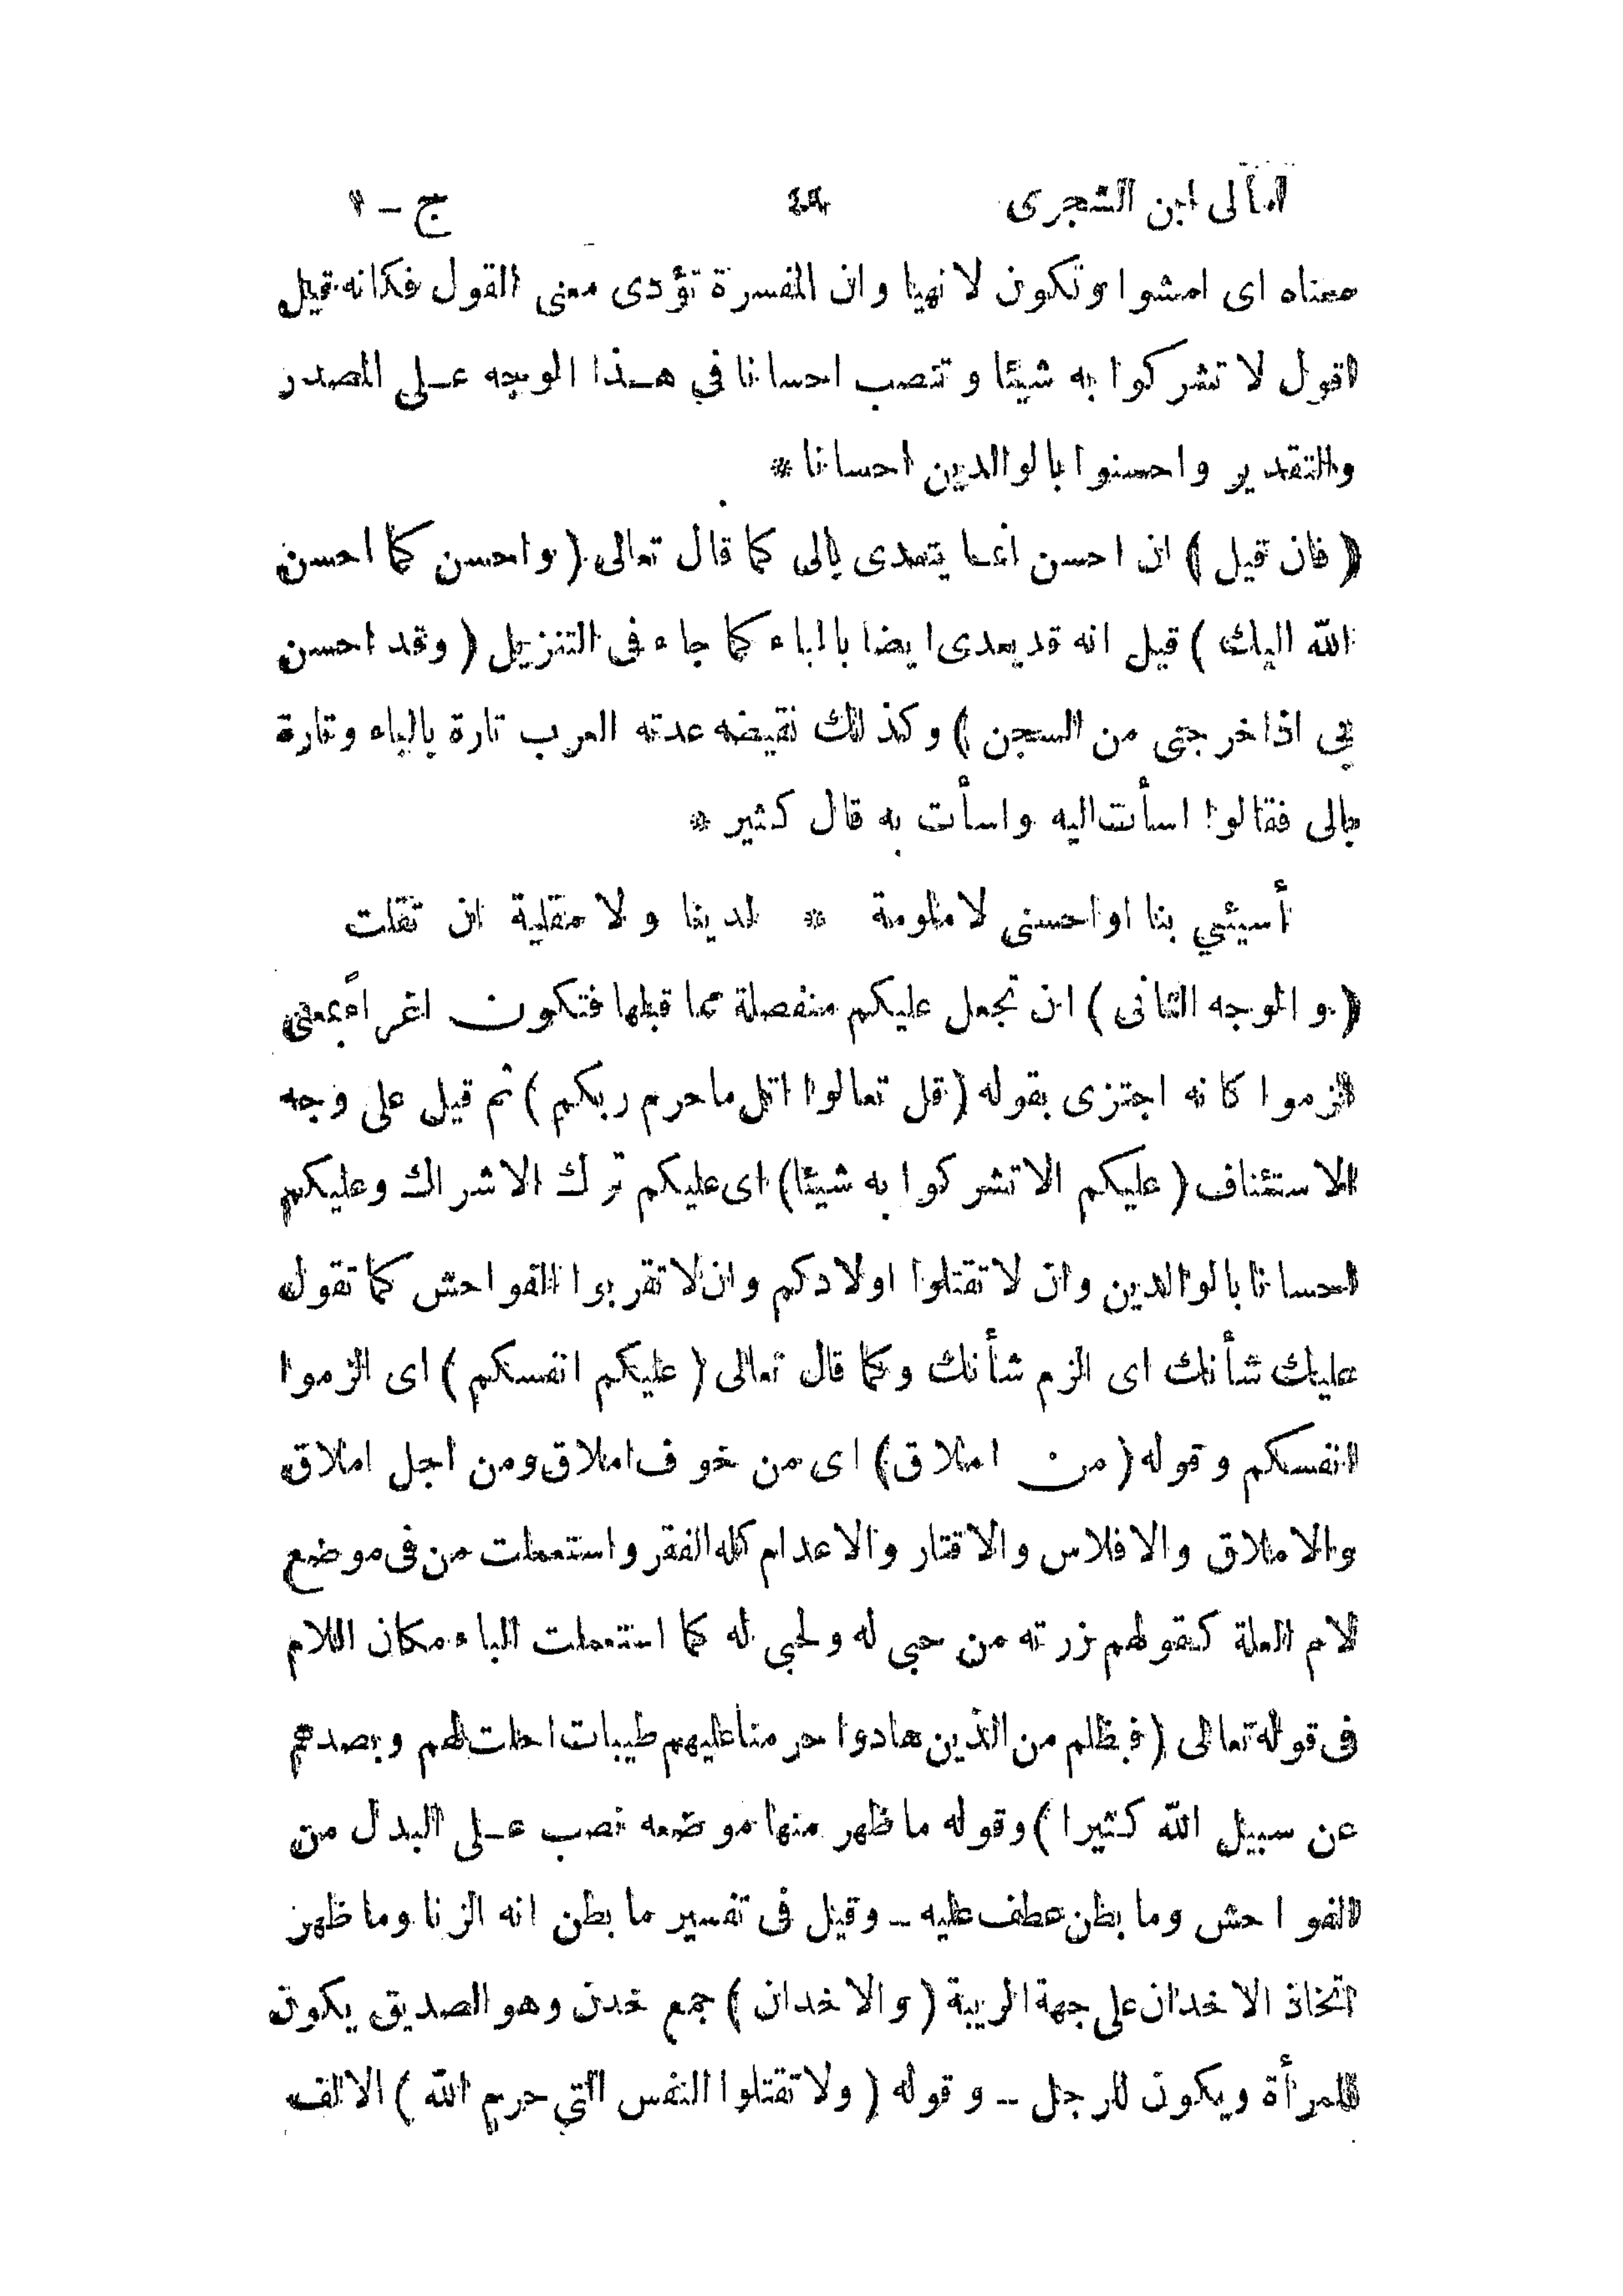 امالى ابن الشجرى ج - ١
معناه اى امشوا وتكون لا نهيا وان المفسرة تؤدى معنى القول فكانه قيل
اقول لا تشركوا به شيئا وتنصب احسانا في هذا الوجه على المصدر
والتقدير واحسنوا بالوالدين احسانا *
( فان قيل ) ان احسن انما يتعدى بالى كما قال تعالى ( واحسن كما احسن
الله اليك ) قيل انه قد يعدى ايضا بالباء كما جاء فى التنزيل ( وقد احسن
بي اذ اخرجنى من السجن ) وكذلك نقيضه عدته العرب تارة بالباء وتارة
بالى فقالوا اسأت اليه واسأت به قال كثير *
أسيئي بنا او احسنى لا ملومة * لدينا ولا مقلية ان تقلت
( والوجه الثانى ) ان تجعل عليكم منفصلة مما قبلها فتكون اغراءً بمعنى
الزموا كانه اجتزى بقوله ( قل تعالوا اتل ما حرم ربكم ) ثم قيل على وجه
الاستئناف ( عليكم الا تشركوا به شيئا ) اى عليكم ترك الاشراك وعليكم
احسانا بالوالدين وان لا تقتلوا اولادكم وان لا تقربوا الفواحش كما تقول
عليك شأنك اى الزم شأنك وكما قال تعالى ( عليكم انفسكم ) اى الزموا
انفسكم وقوله ( من املاق ) اى من خوف املاق ومن اجل املاق
والاملاق والافلاس والاقتار والاعدام كله الفقر واستعملت من فى موضع
لام العلة كقولهم زرته من حبى له ولحبى له كما استعملت الباء مكان اللام
فى قوله تعالى ( فبظلم من الذين هادوا حرمنا عليهم طيبات احلت لهم وبصدهم
عن سبيل الله كثيرا ) وقوله ما ظهر منها موضعه نصب على البدل من
الفواحش وما بطن عطف عليه – وقيل فى تفسير ما بطن انه الزنا وما ظهر
اتخاذ الاخدان على جهة الريبة ( والاخدان ) جمع خدن وهو الصديق يكون
للمرأة ويكون للرجل – وقوله ( ولا تقتلوا النفس التي حرم الله ) الالف